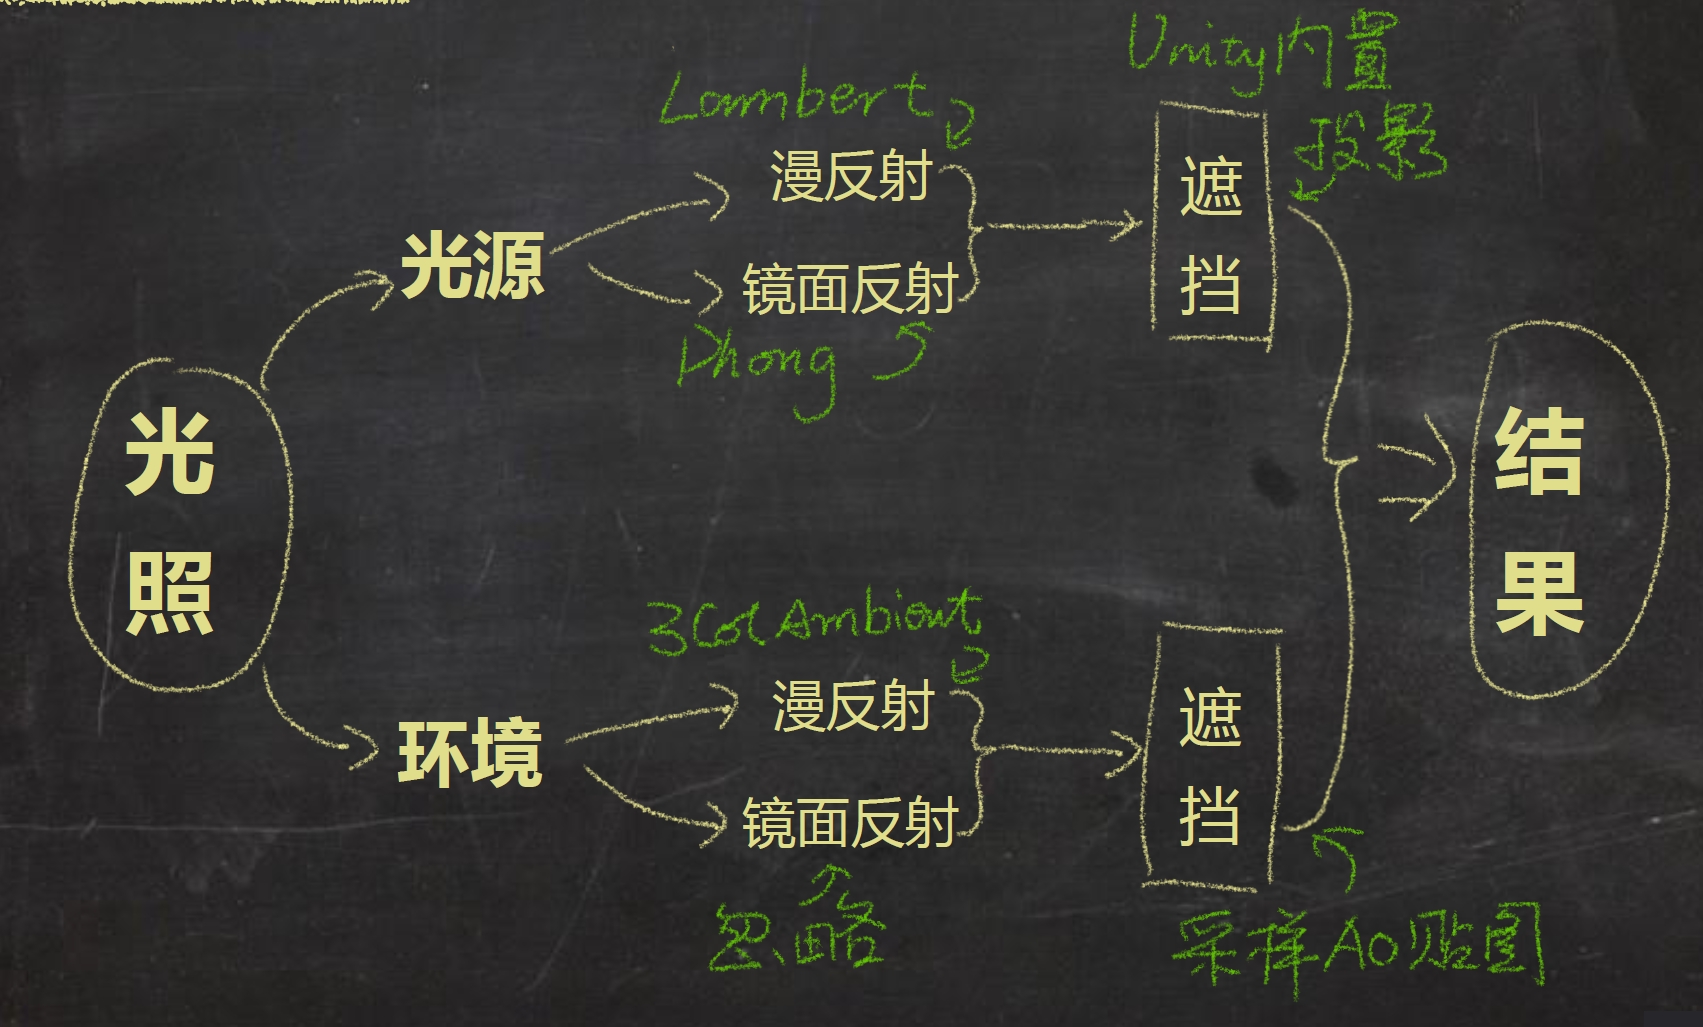 Unity内置
投影
Lambert
漫反射
遮
挡
光源
镜面反射
Phong
光
照
结
果
3Col Ambient
漫反射
遮
挡
环境
镜面反射
忽略
采样AO贴图